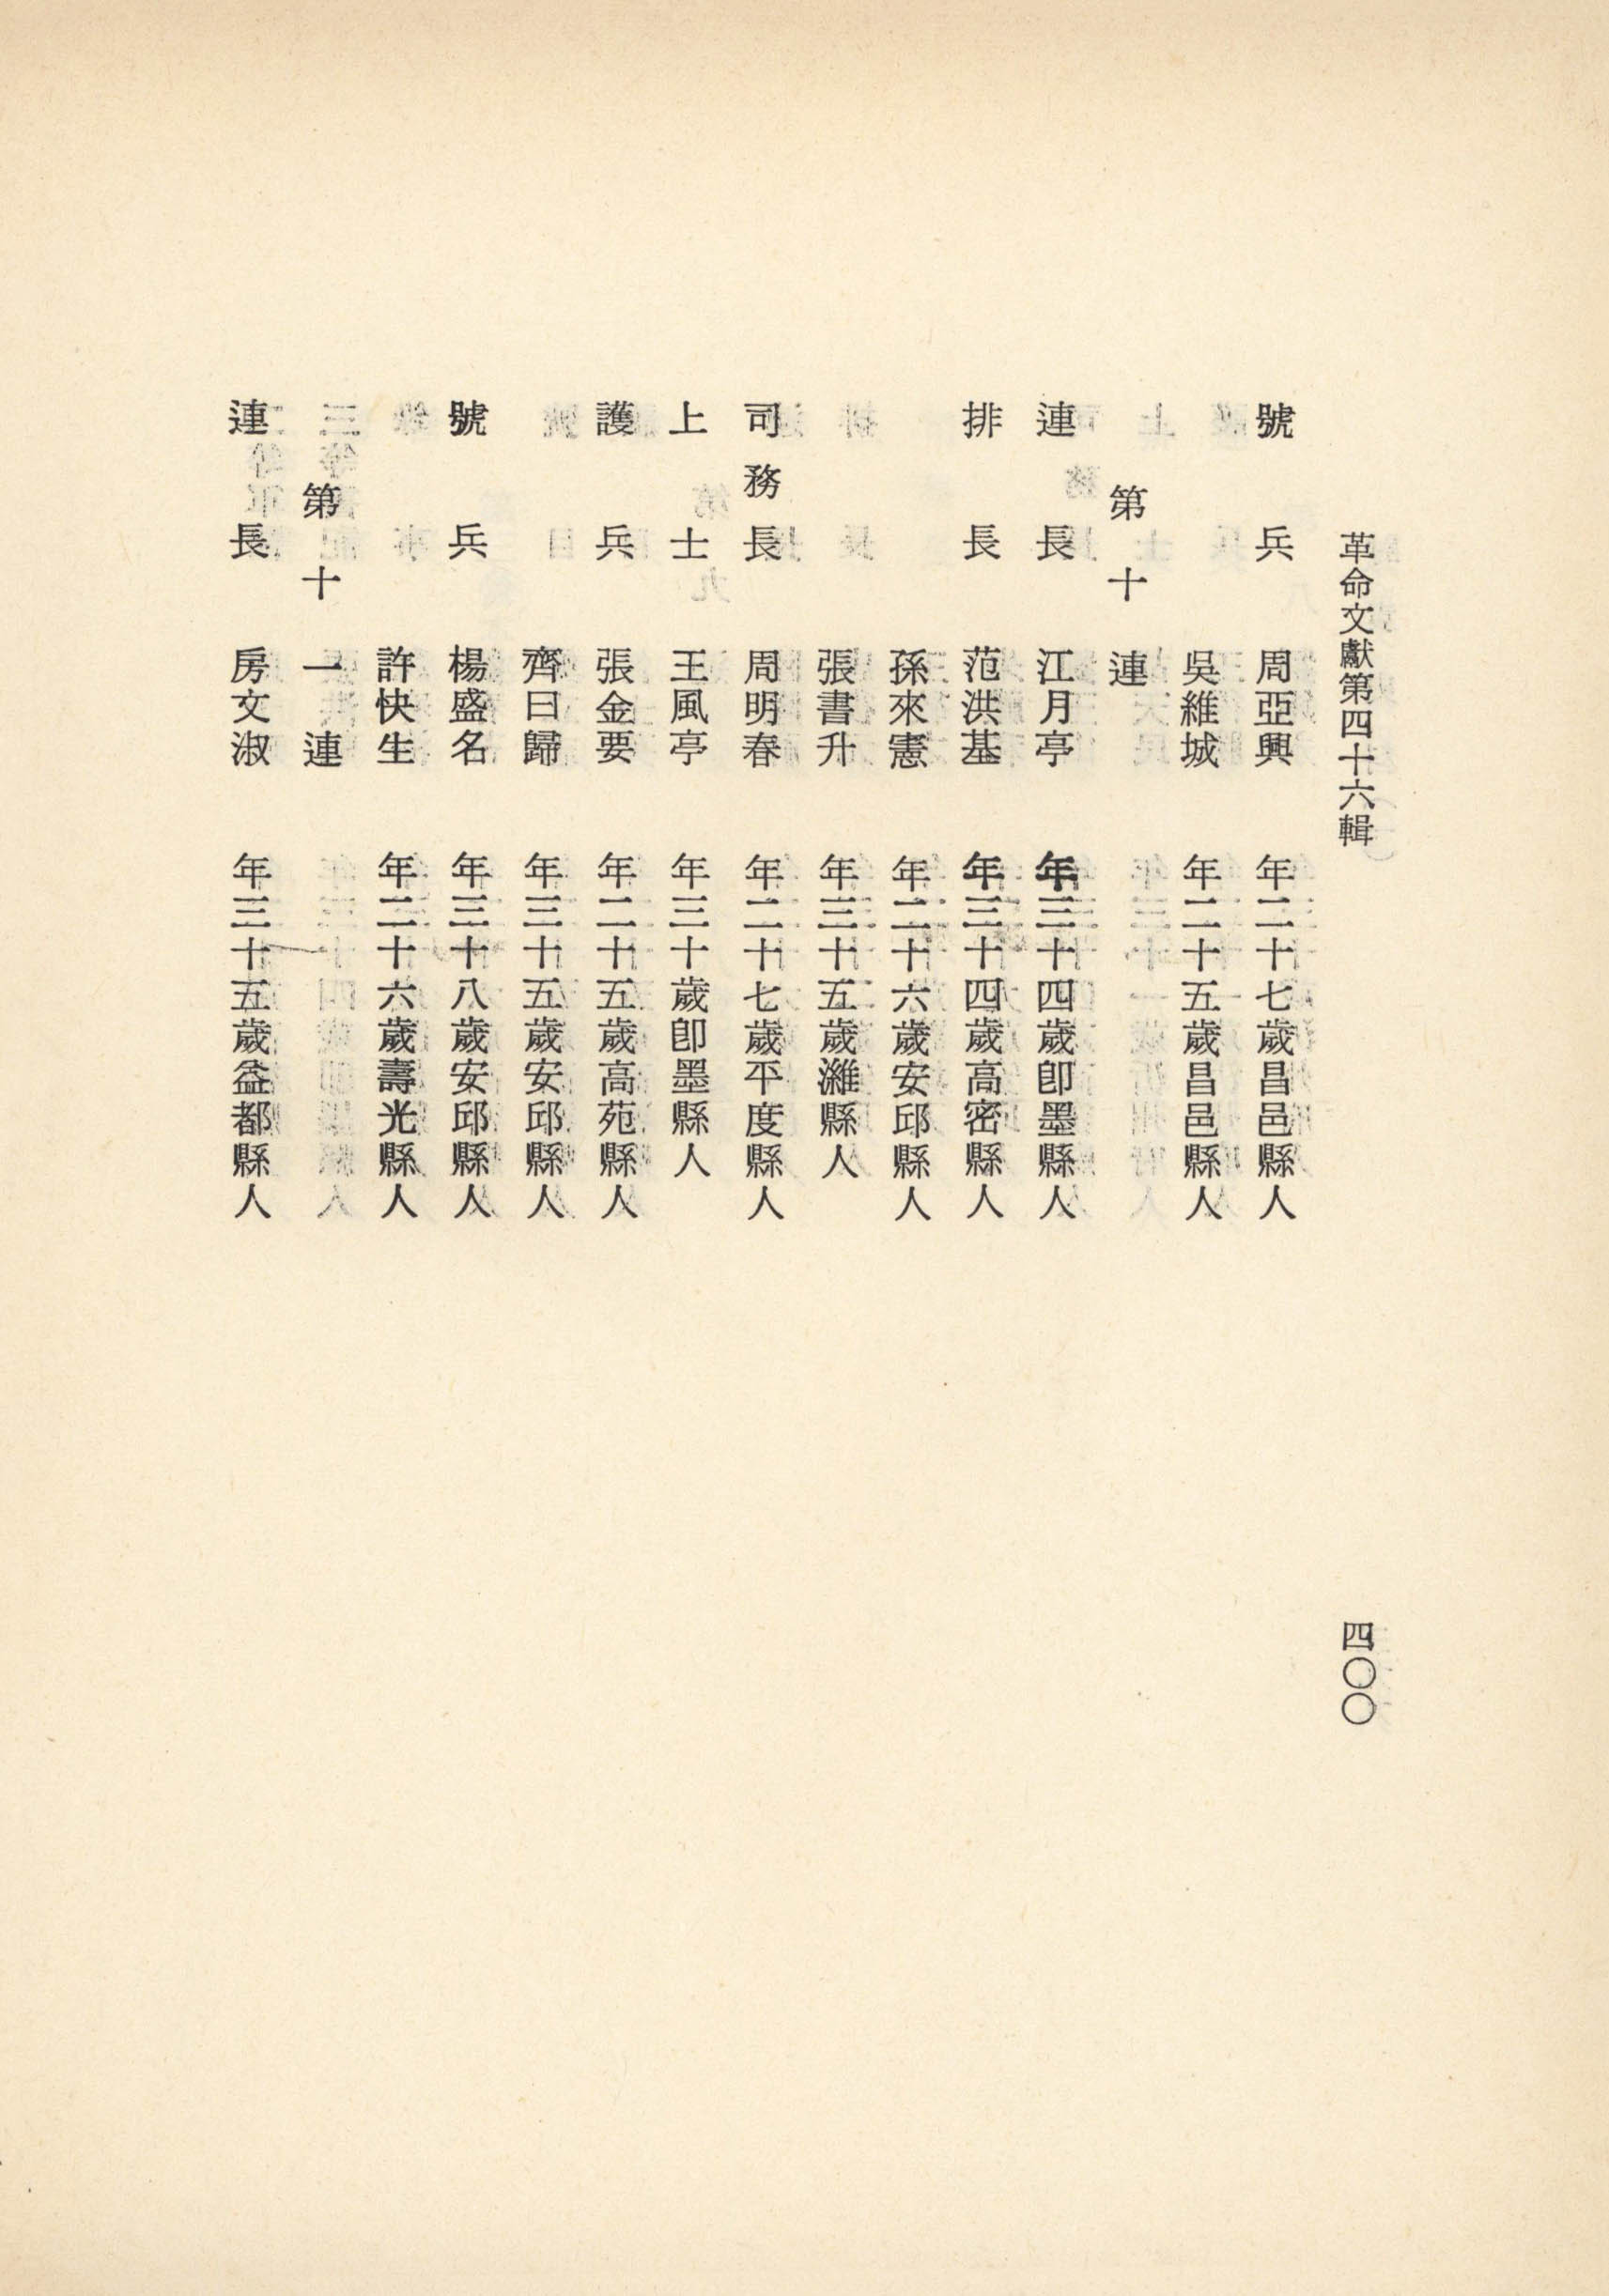 革命文獻第四十六輯
四〇〇
號兵 周亞興 年二十七歲昌邑縣人
吳維城 年二十五歲昌邑縣人
第十連
連長 江月亭 年三十四歲卽墨縣人
排長 范洪基 年三十四歲高密縣人
孫來憲 年二十六歲安邱縣人
張書升 年三十五歲濰縣人
司務長 周明春 年二十七歲平度縣人
上士 王風亭 年三十歲卽墨縣人
護兵 張金要 年二十五歲高苑縣人
齊曰歸 年三十五歲安邱縣人
號兵 楊盛名 年三十八歲安邱縣人
許快生 年二十六歲壽光縣人
第十一連
連長 房文淑 年三十五歲益都縣人